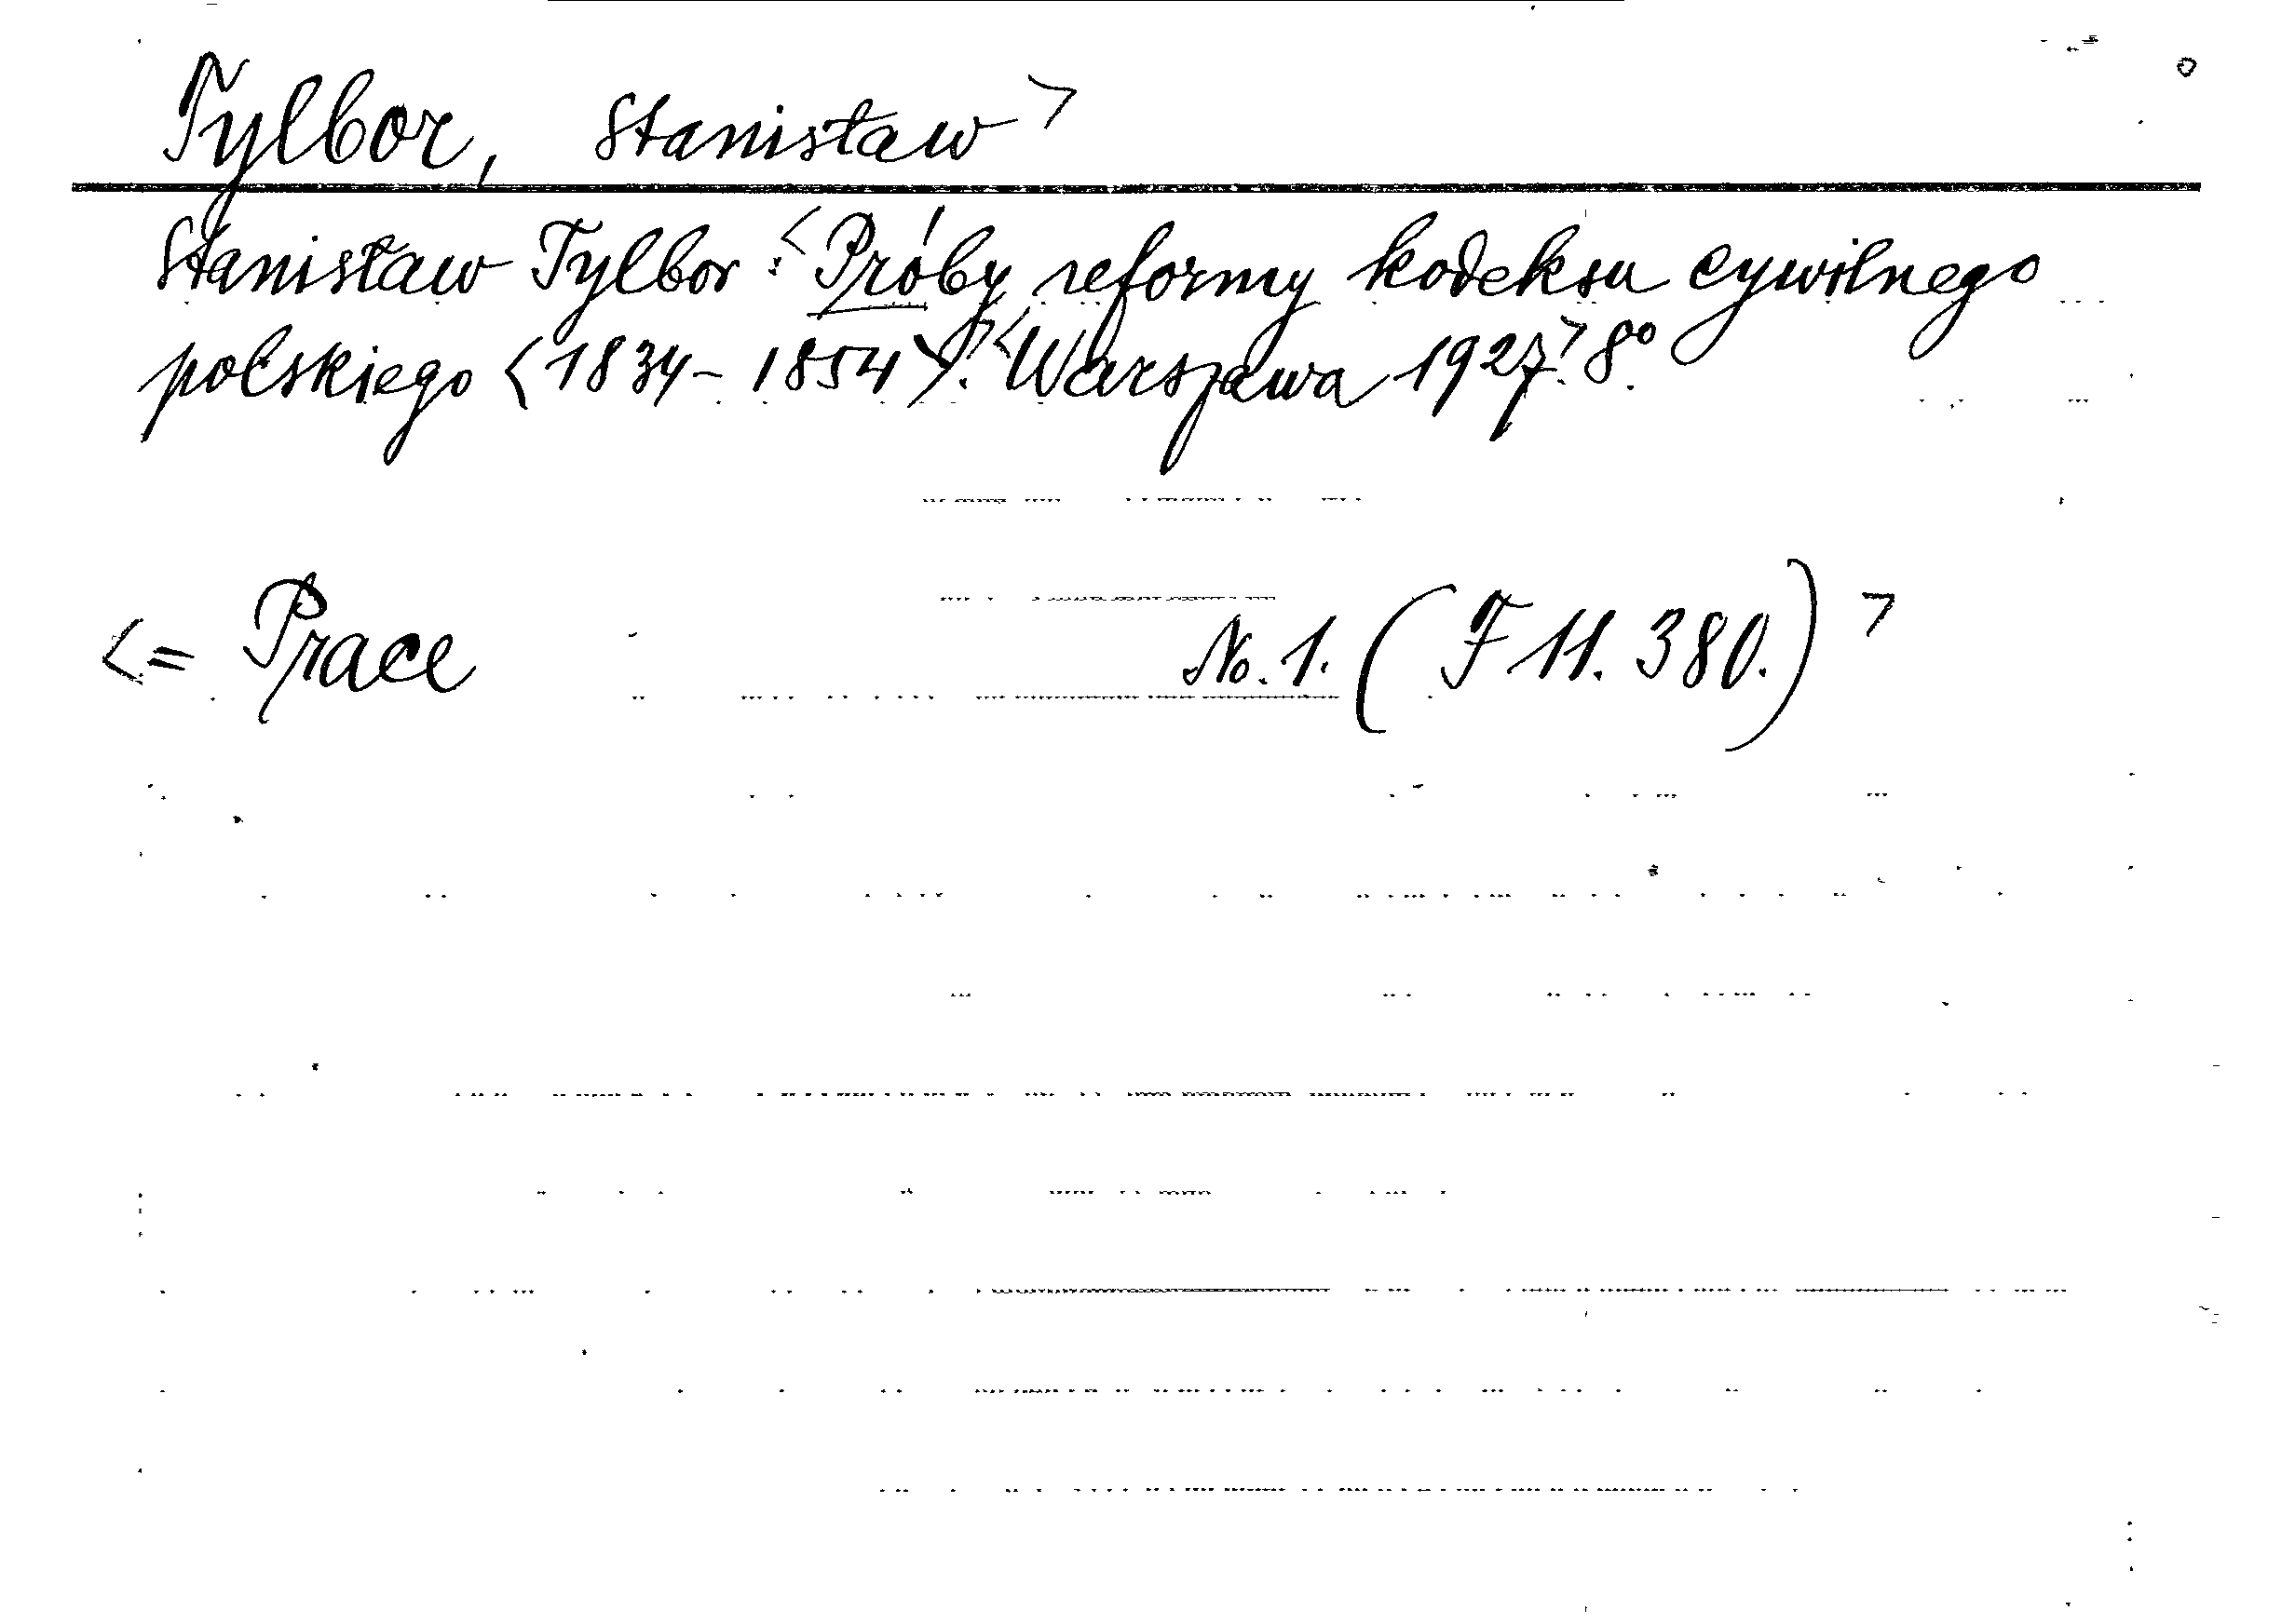 Tylbor, Stanisław >
Stanisław Tylbor: < Próby reformy kodeksu cywilnego
polskiego <1834-1854>. > < Warszawa 1927. > 8°.
<= Prace No. 1. (F 11. 380.) >